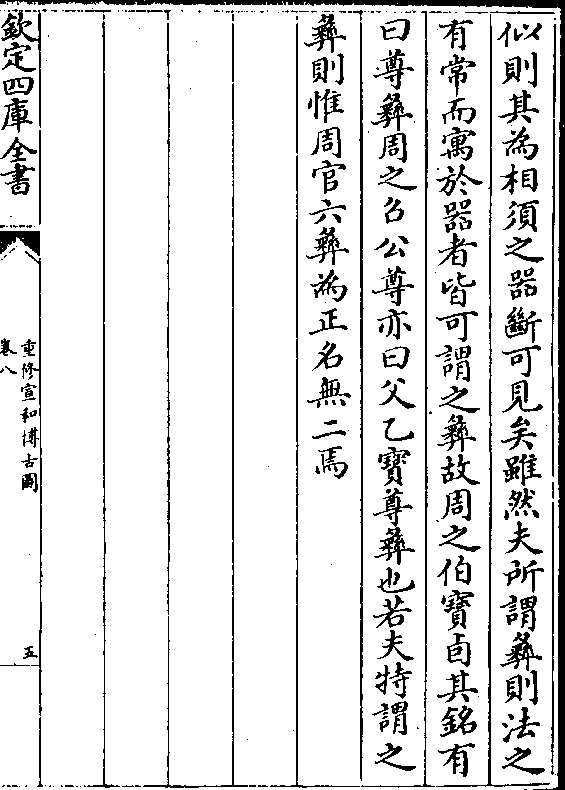 似則其為相須之器斷可見矣雖然夫所謂彝則法之
有常而寓於器者皆可謂之彝故周之伯寶卣其銘有
曰尊彝周之召公尊亦曰父乙寶尊彝也若夫特謂之
彝則惟周官六彝為正名無二焉
欽定四庫全書
重修宣和博古圖
卷八
五